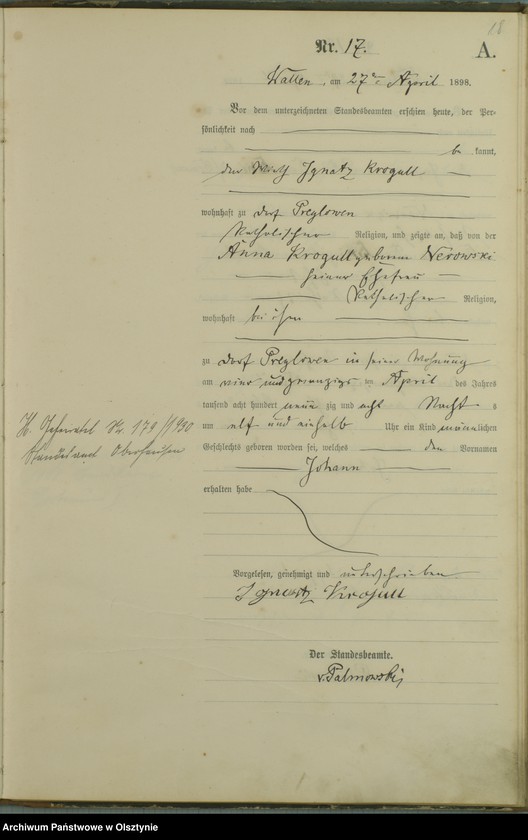 18
Nr. 17.
A.
Wallen, am 27ten April 1898.
Vor dem unterzeichneten Standesbeamten erschien heute, der Per-
sönlichkeit nach
be kannt,
der Wirth Ignatz Krogull
wohnhaft zu Dorf Preylowen
katholischer Religion, und zeigte an, daß von der
Anna Krogull geborenen Nerowski
seiner Ehefrau
katholischer Religion,
wohnhaft bei ihm
zu Dorf Preylowen in seiner Wohnung
am vier und zwanzigs ten April des Jahres
tausend acht hundert neun zig und acht Nacht s
um elf und einhalb Uhr ein Kind männlichen
Geschlechts geboren worden sei, welches den Vornamen
Johann
erhalten habe
H. Nr. 173/1930
Standesamt Oberhausen
Vorgelesen, genehmigt und unterschrieben
Ignatz Krogull
Der Standesbeamte.
v. Palmowski
Archiwum Państwowe w Olsztynie